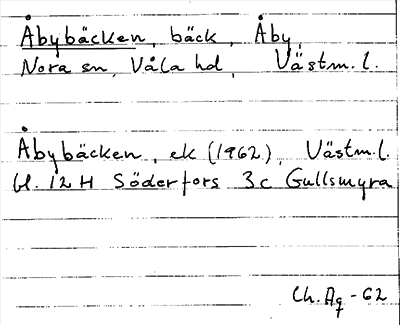 Åbybäcken, bäck, Åby,
Nora sn, Våla hd, Västm. l.
Åbybäcken, ek (1962), Västm. l.
bl. 12 H Söderfors 3c Gullsmyra
Ch. Ag -62